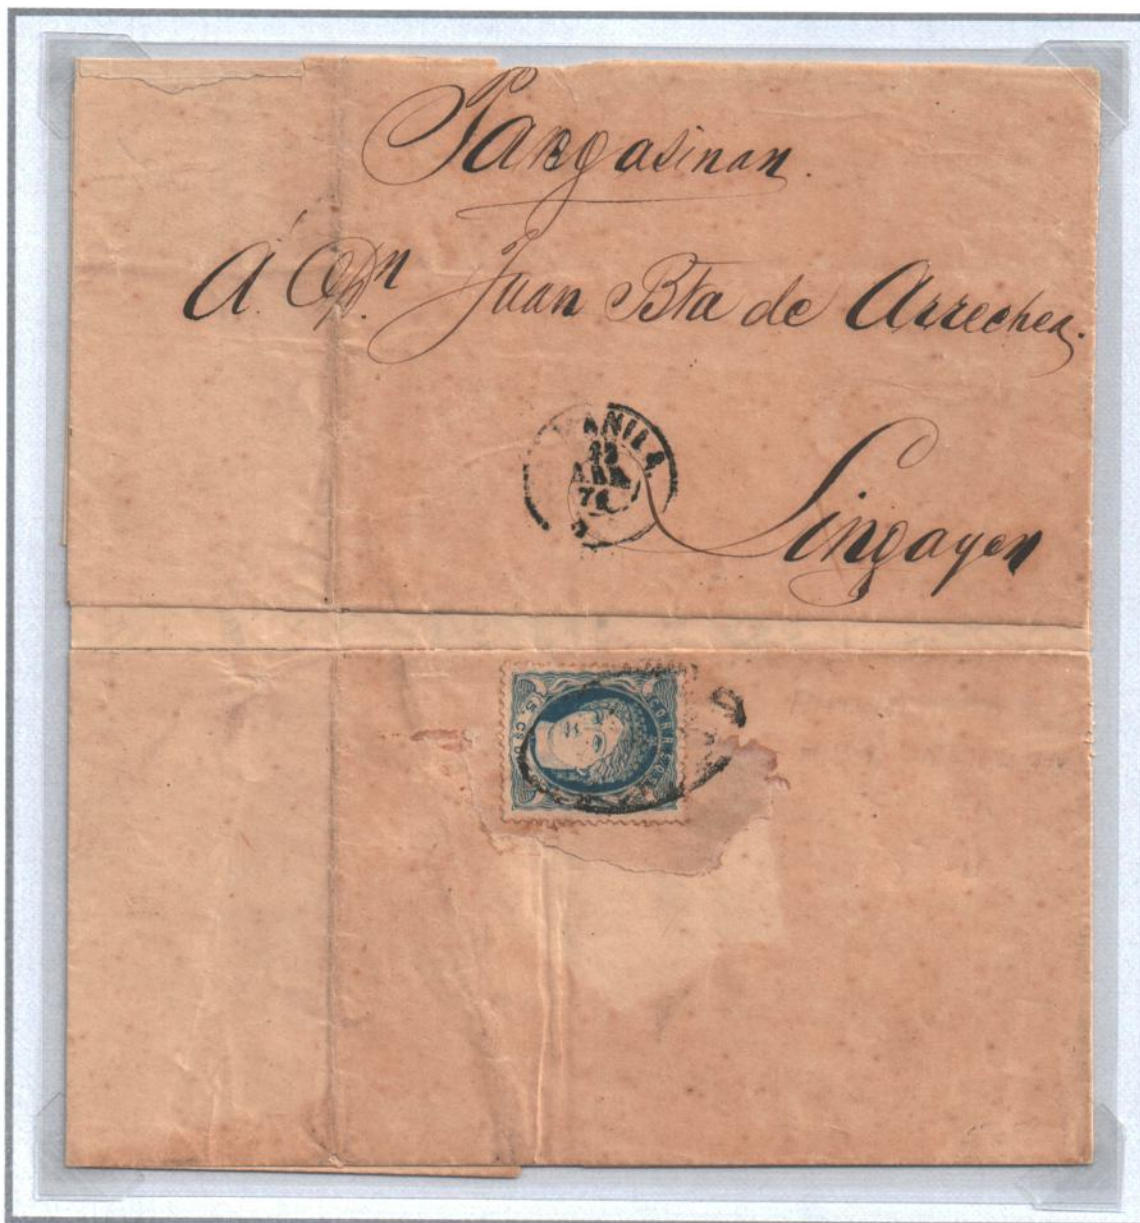 Pangasinan.
A. Dn. Juan Bta de Arrechea.
MANILA
ABR
Lingayen
CORREOS
5. Cs